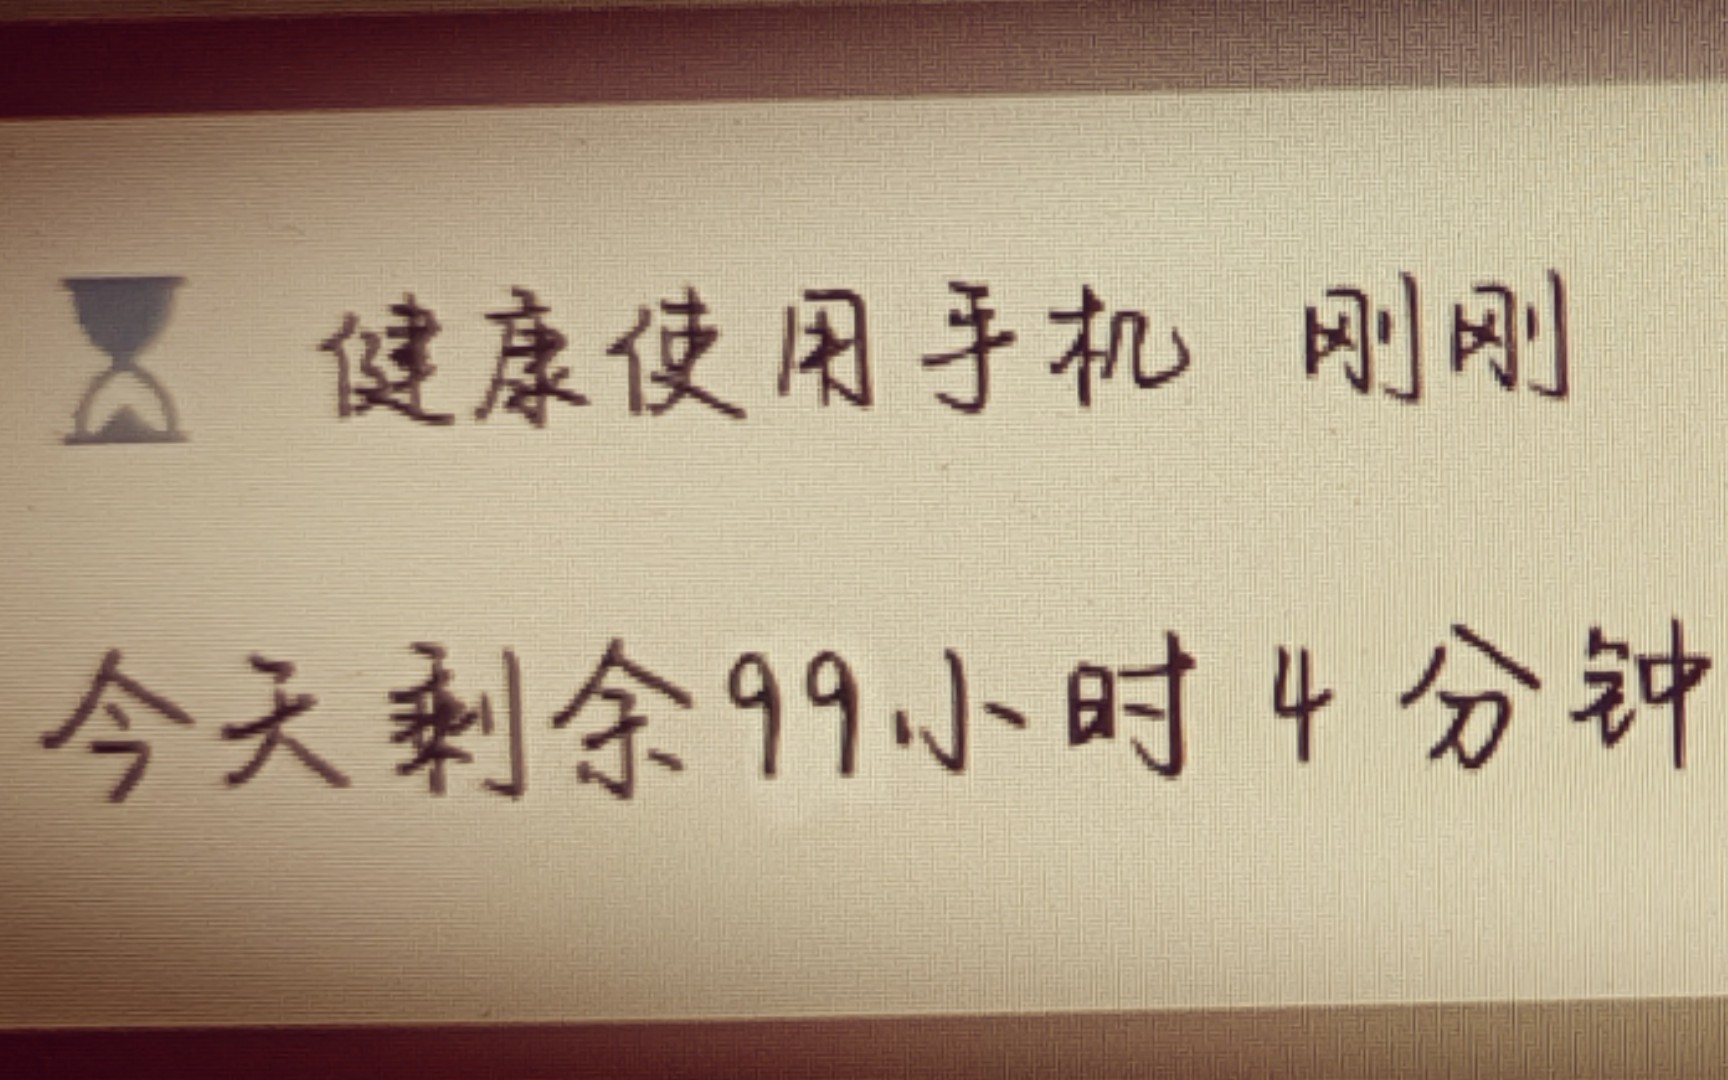 健康使用手机 刚刚
今天剩余99小时4分钟